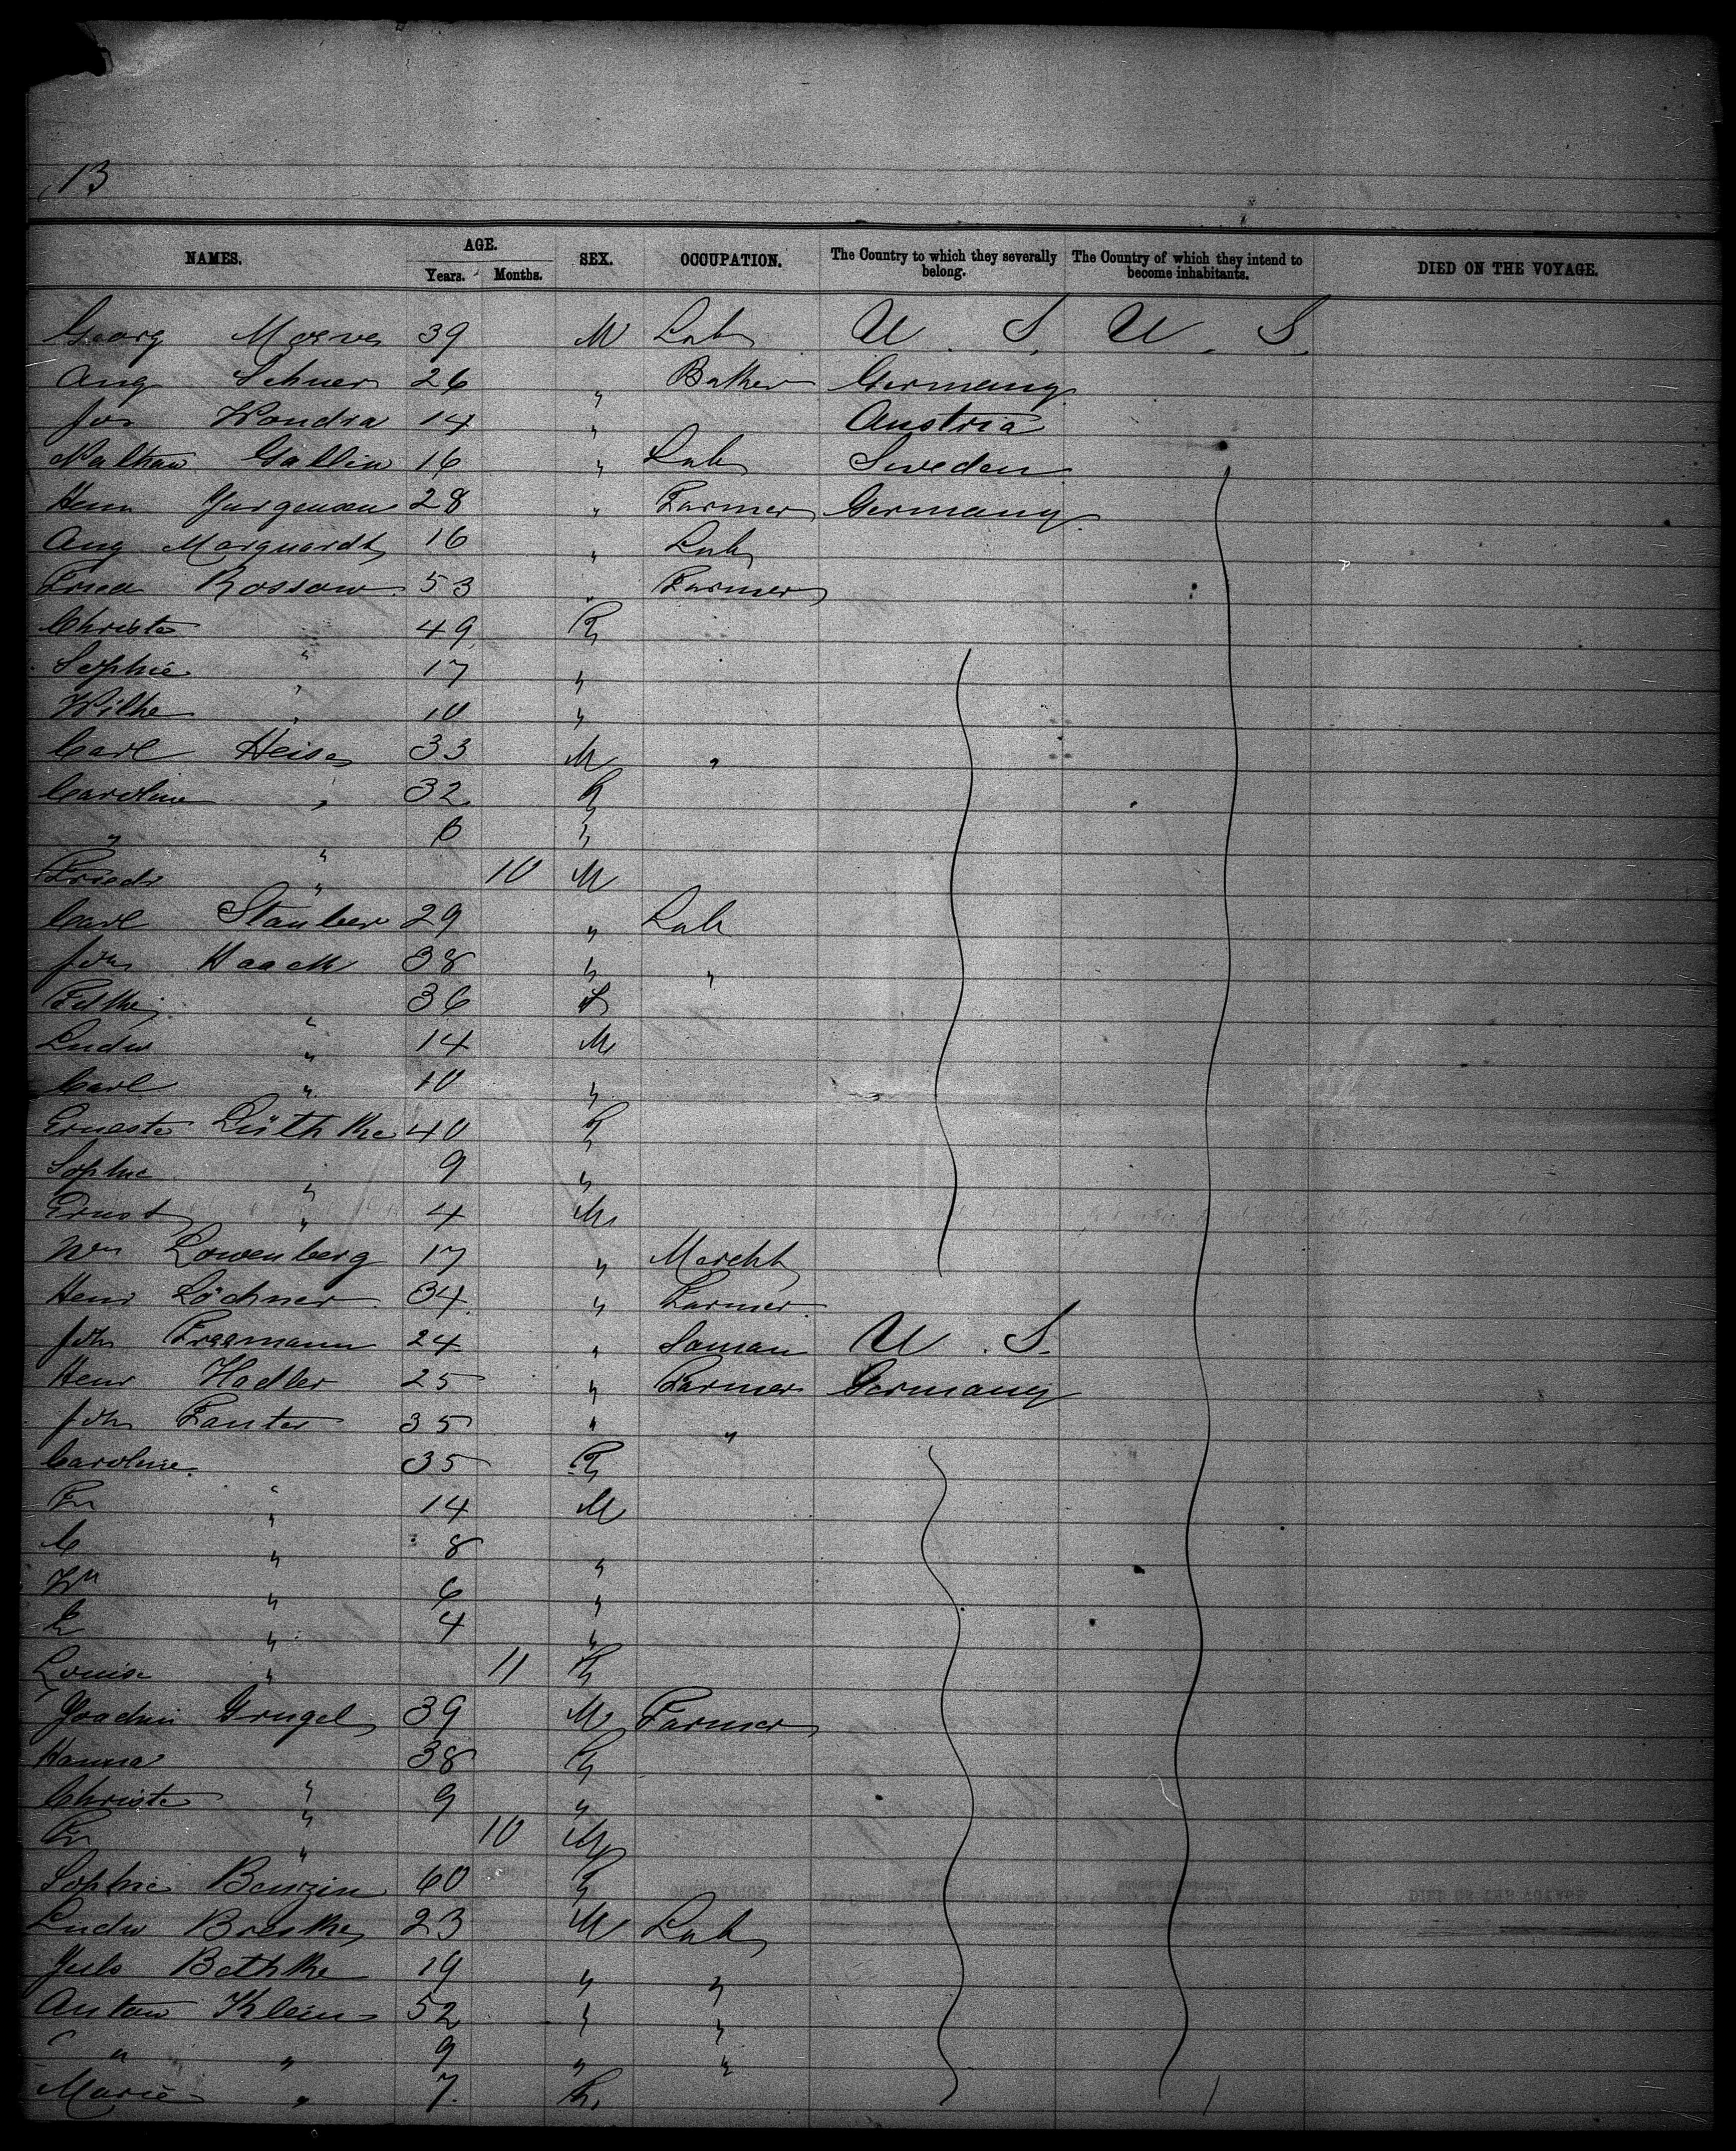 13
NAMES. AGE. SEX. OCCUPATION. The Country to which they severally belong. The Country of which they intend to become inhabitants. DIED ON THE VOYAGE.
Years. Months.
Georg 39 M Lab U. S. U. S.
Aug Schuer 26 " Baker Germany
Jos Wondra 14 " Austria
Nathan Gallin 16 " Lab Sweden
Henr Jurgensen 28 " Farmer Germany
Aug Marquardt 16 " Lab
Fried Rossow 53 " Farmer
Christe " 49 F
Sophie " 17 "
Wilhe " 10 "
Carl Heise 33 M "
Caroline " 32 F
" " 6 "
Friedr " 10 M
Carl Stauber 29 " Lab
Joh Haack 38 " "
" 36 F
Ludw " 14 M
Carl " 10 "
Erneste Lüthke 40 F
Sophie " 9 "
Ernst " 4 M
Wm Lowenberg 17 " Marcht
Henr Löchner 34 " Farmer
Joh Freemann 24 " Saman U. S.
Henr Hadler 25 " Farmer Germany
Joh Fanter 35 " "
Caroline " 35 F
Fr " 14 M
C " 8 "
Wm " 6 "
E " 4 "
Louise " 11 F
Joachim Grugel 39 M Farmer
Hanna " 38 F
Christe " 9 "
Fr " 10 M
Sophie Benzin 60 F
Ludw Breske 23 M Lab
Juls Bethke 19 " "
Anton Klein 52 " "
" " 9 " "
Marie " 7 F